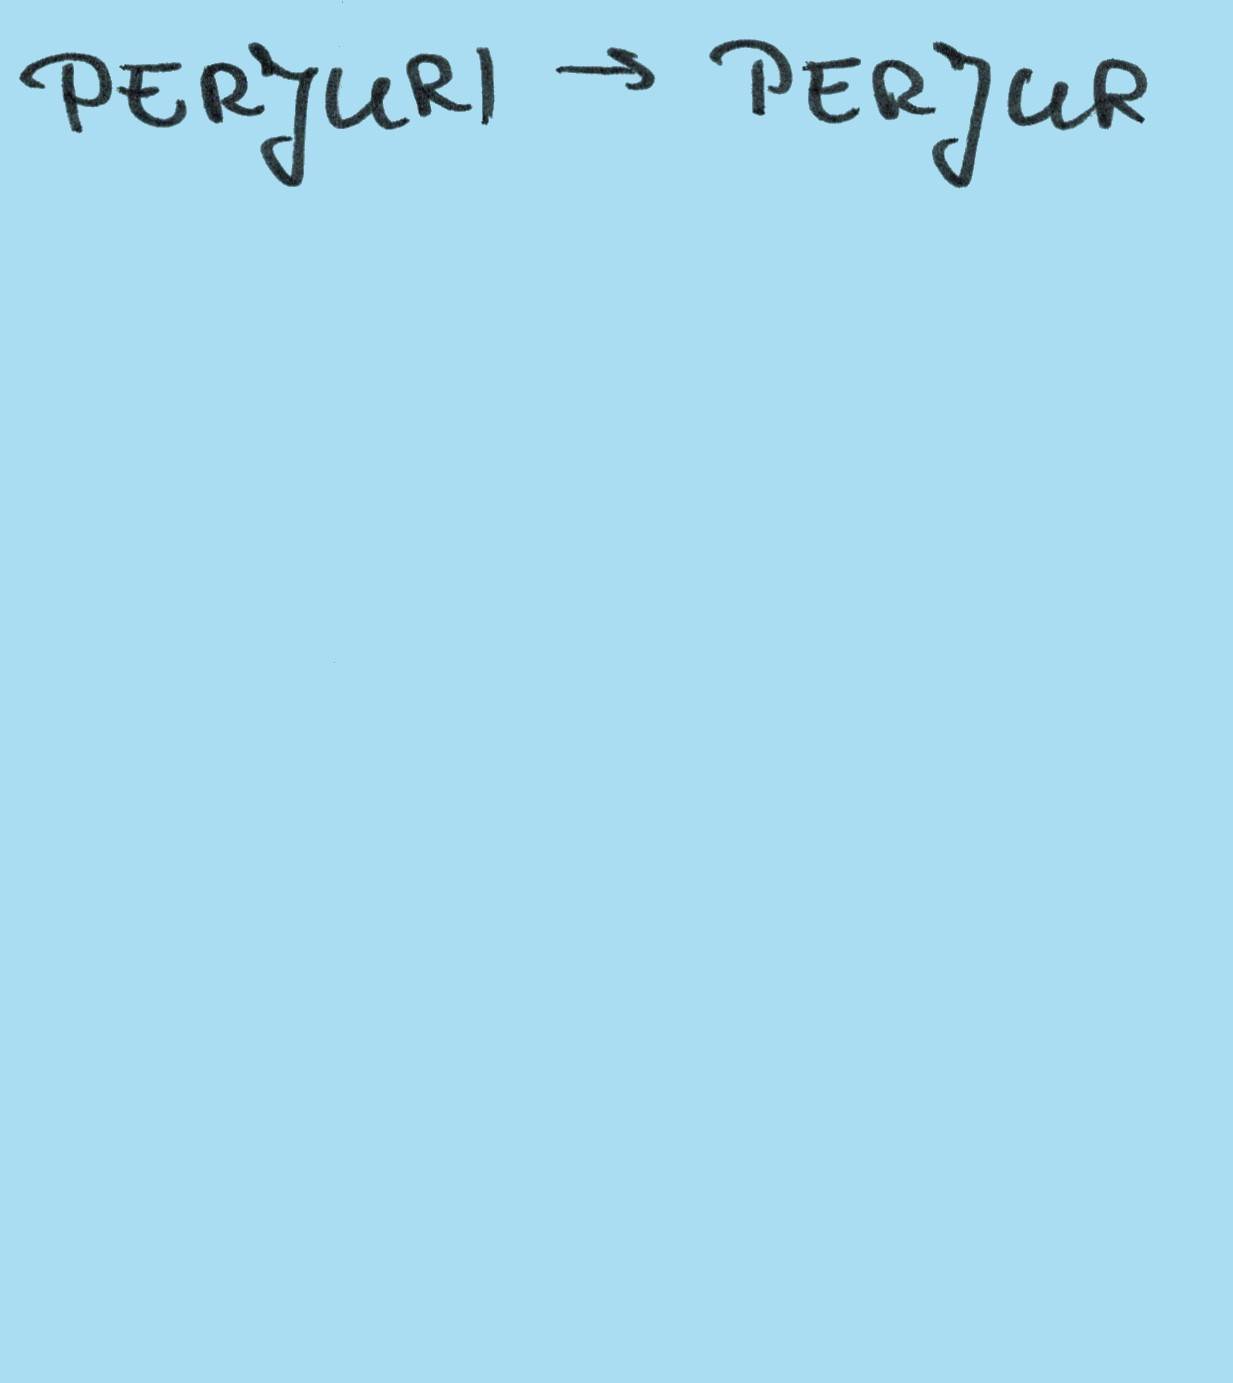 PERJURI → PERJUR